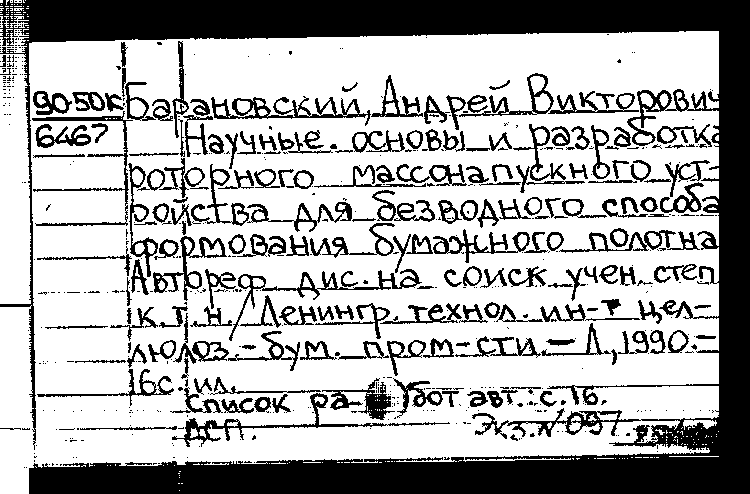 90-50к Барановский, Андрей Викторович
6467 Научные основы и разработка
роторного массонапускного уст-
ройства для безводного способа
формования бумажного полотна
Автореф дис. на соиск. учен. степ
к.т.н./Ленингр. технол. ин-т цел-
люлоз.-бум. пром-сти.— Л., 1990.—
16с. ил.
Список ра- бот авт.: с.16.
ДСП. Экз.№097.